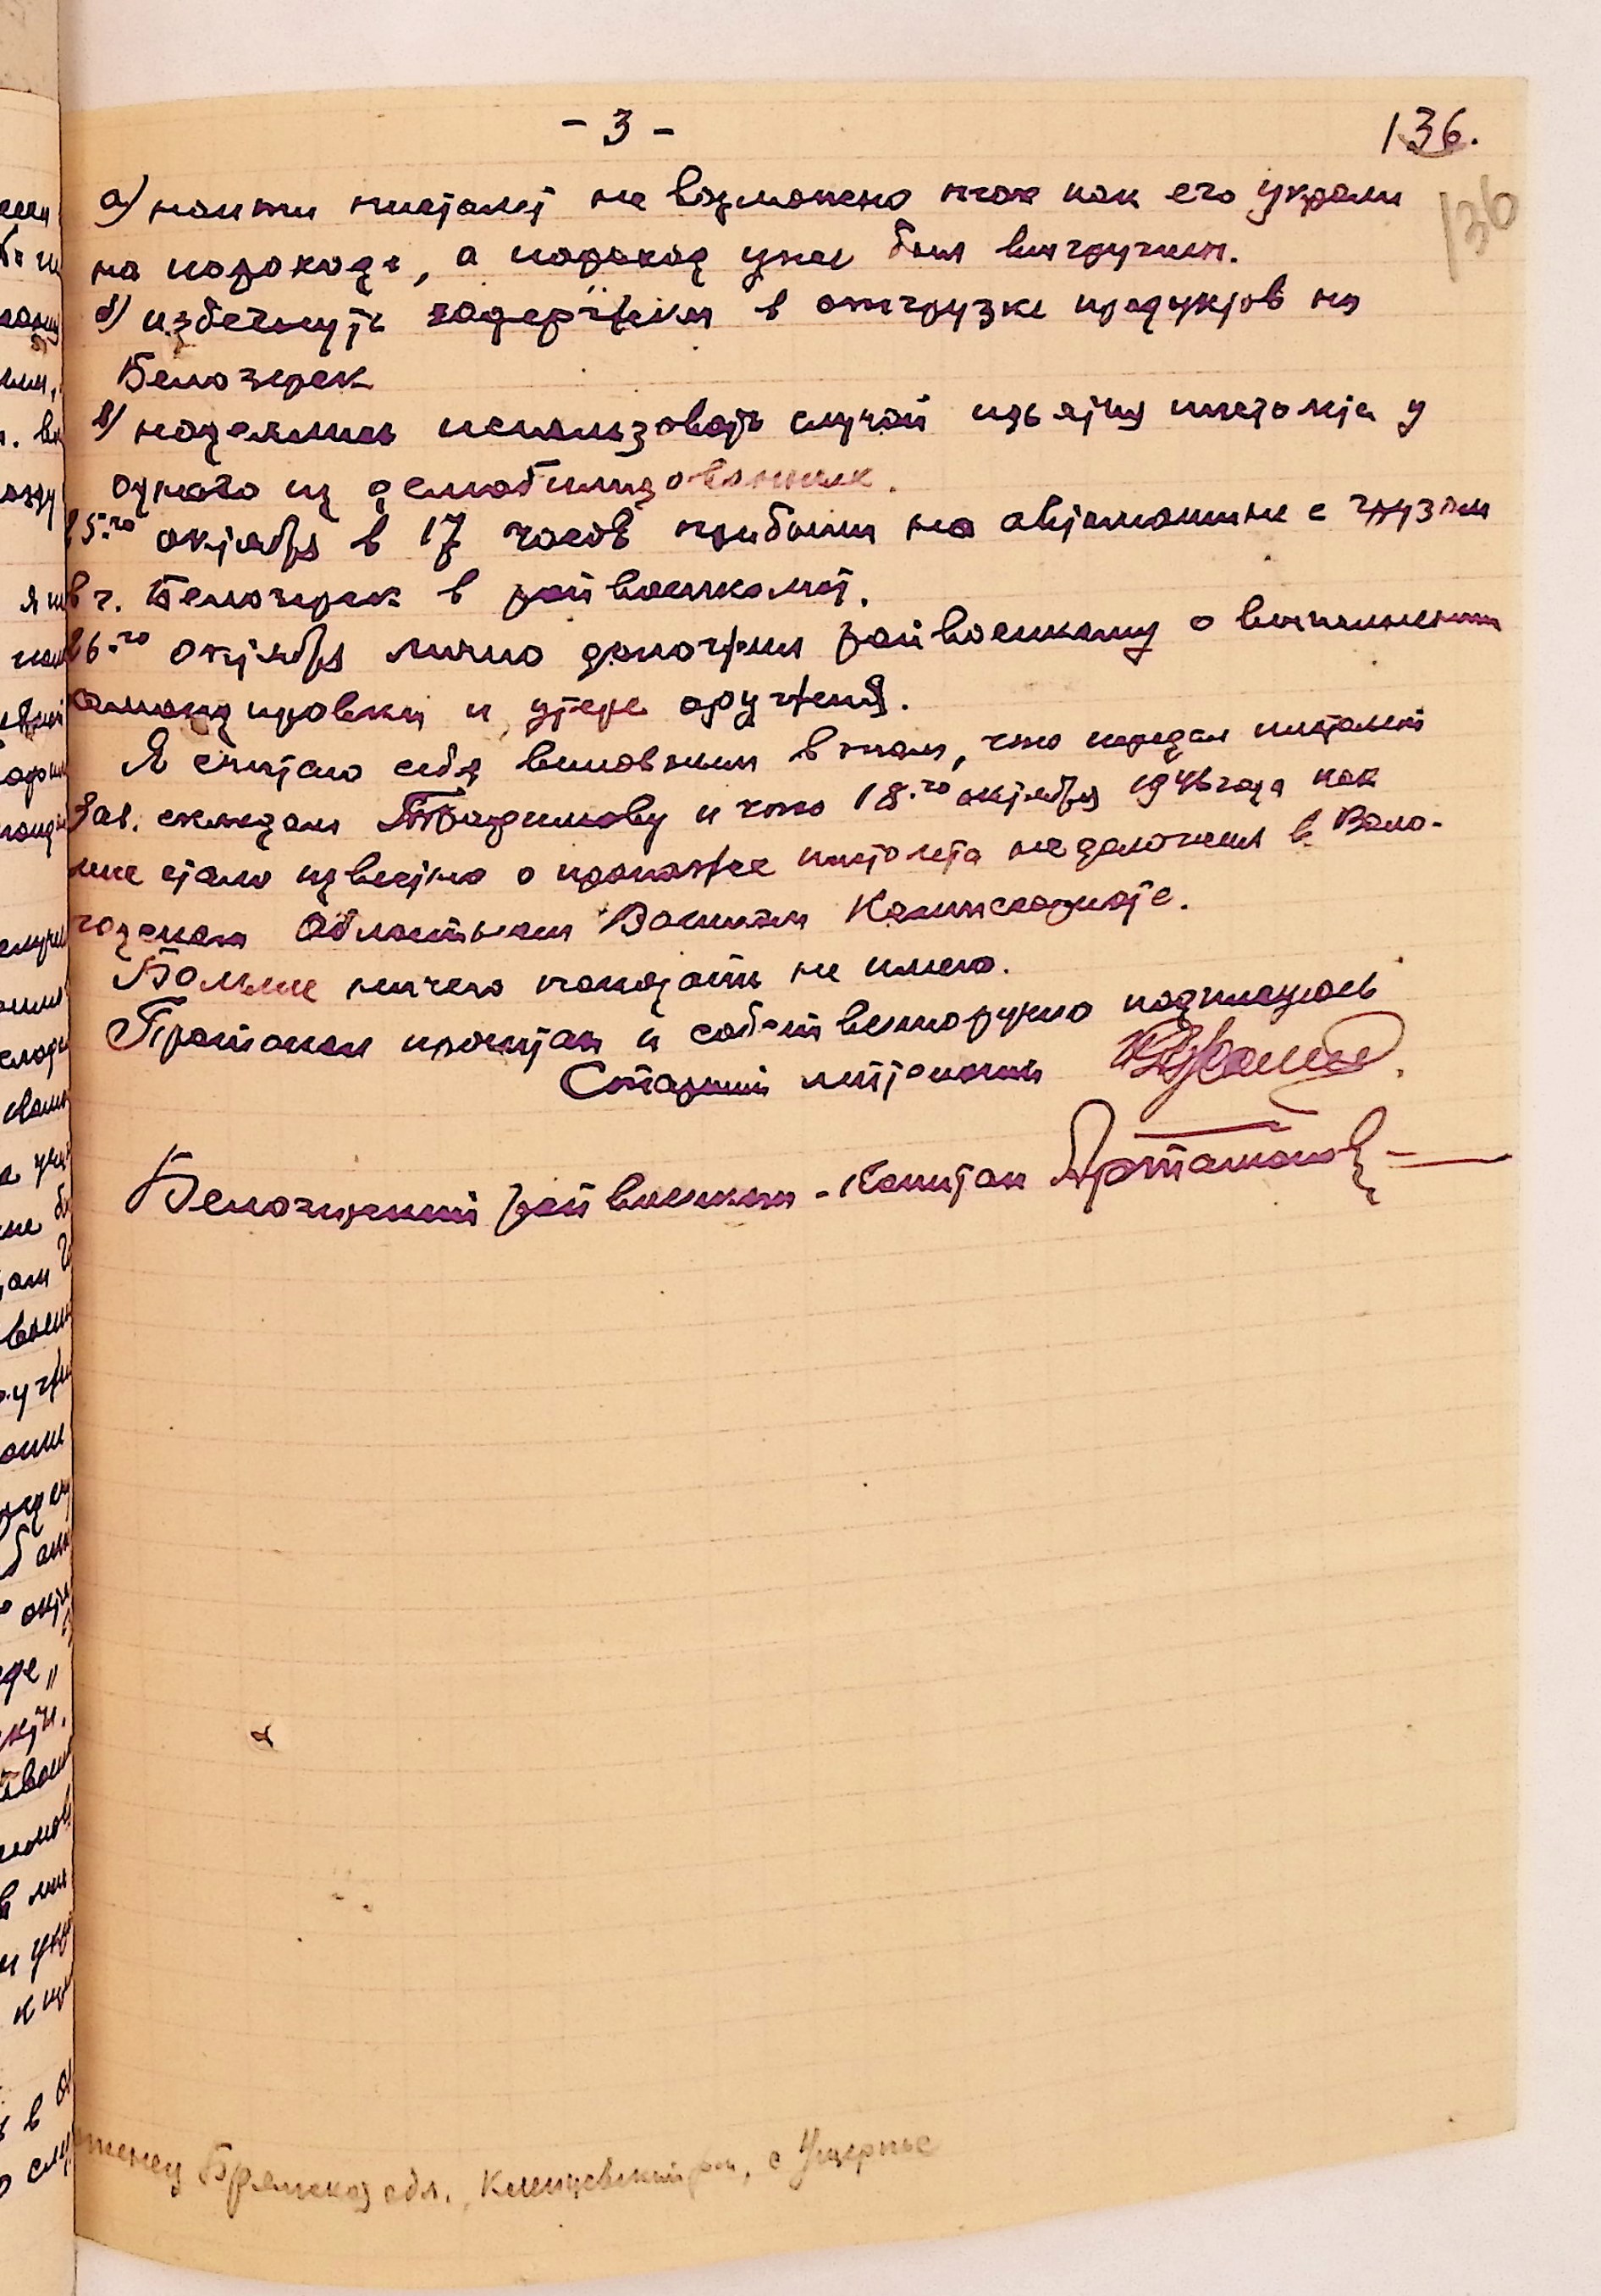 - 3 -
136.
136
а) найти пистолет не возможно так как его украли
на пароходе, а пароход уже был выгружен.
б) избегнуть задержки в отгрузке продуктов на
Белозерск
в) надеялись использовать случай изъятия пистолета у
одного из демобилизованных.
25-го октября в 17 часов прибыли на автомашине с грузом
в г. Белозерск в райвоенкомат.
26-го октября лично доложил райвоенкому о выполнении
командировки и утере оружия.
Я считаю себя виновным в том, что передал пистолет
Зав. складом Трофимову и что 18-го октября 1946 года как
мне стало известно о пропаже пистолета не доложил в Воло-
годском Областном Военном Комиссариате.
Больше ничего показать не имею.
Протокол прочитан и собственноручно подписуюсь
Старший лейтенант
Белозерский райвоенком - Капитан Артамонов
Брянская обл., Клинцовский р-н, с Ущерпье